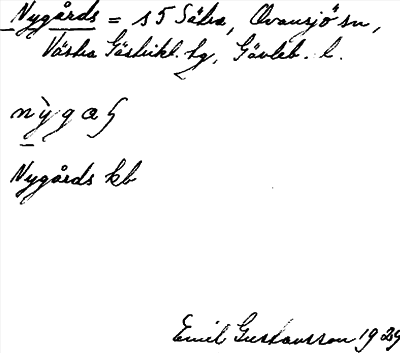 Nygårds = s 5 Sätra, Ovansjö sn,
Västra Gästrikl. tg, Gävleb. l.
nỳgaʃ
Nygårds kb
Emil Gustavsson 1929